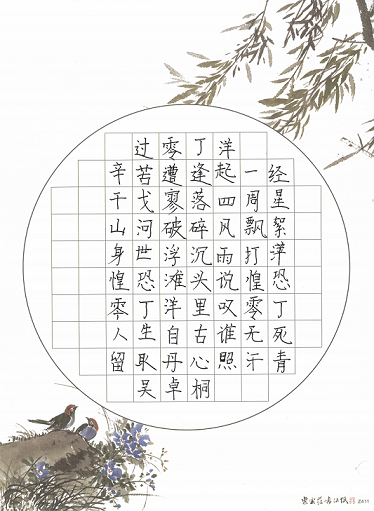 过零丁洋
辛苦遭逢起一经
干戈寥落四周星
山河破碎风飘絮
身世浮沉雨打萍
惶恐滩头说惶恐
零丁洋里叹零丁
人生自古谁无死
留取丹心照汗青
吴卓桐